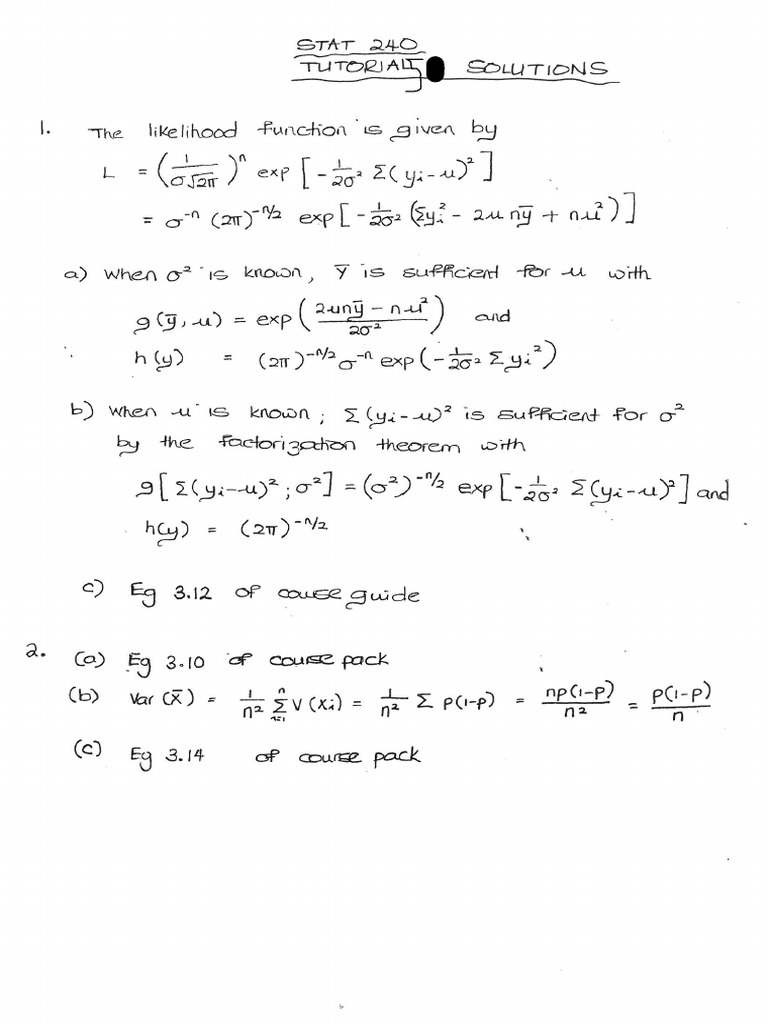 STAT 240
TUTORIAL 5 SOLUTIONS
1. The likelihood function is given by
L = (1/(σ√2π))ⁿ exp [ -1/2σ² Σ( yi - u)² ]
= σ⁻ⁿ (2π)^(-n/2) exp [ -1/2σ² (Σyi² - 2u nȳ + nu²) ]
a) When σ² is known, Ȳ is sufficient for u with
g(ȳ, u) = exp ( (2unȳ - nu²)/2σ² ) and
h(y) = (2π)^(-n/2) σ⁻ⁿ exp (- 1/2σ² Σyi²)
b) When u is known; Σ(yi-u)² is sufficient for σ²
by the factorization theorem with
g[ Σ(yi-u)² ; σ²] = (σ²)^(-n/2) exp [- 1/2σ² Σ(yi-u)² ] and
h(y) = (2π)^(-n/2)
c) Eg 3.12 of couse guide
2. (a) Eg 3.10 of course pack
(b) Var (X̄) = 1/n² Σⁿᵢ₌₁ V (Xi) = 1/n² Σ p(1-p) = np(1-p)/n² = p(1-p)/n
(c) Eg 3.14 of course pack